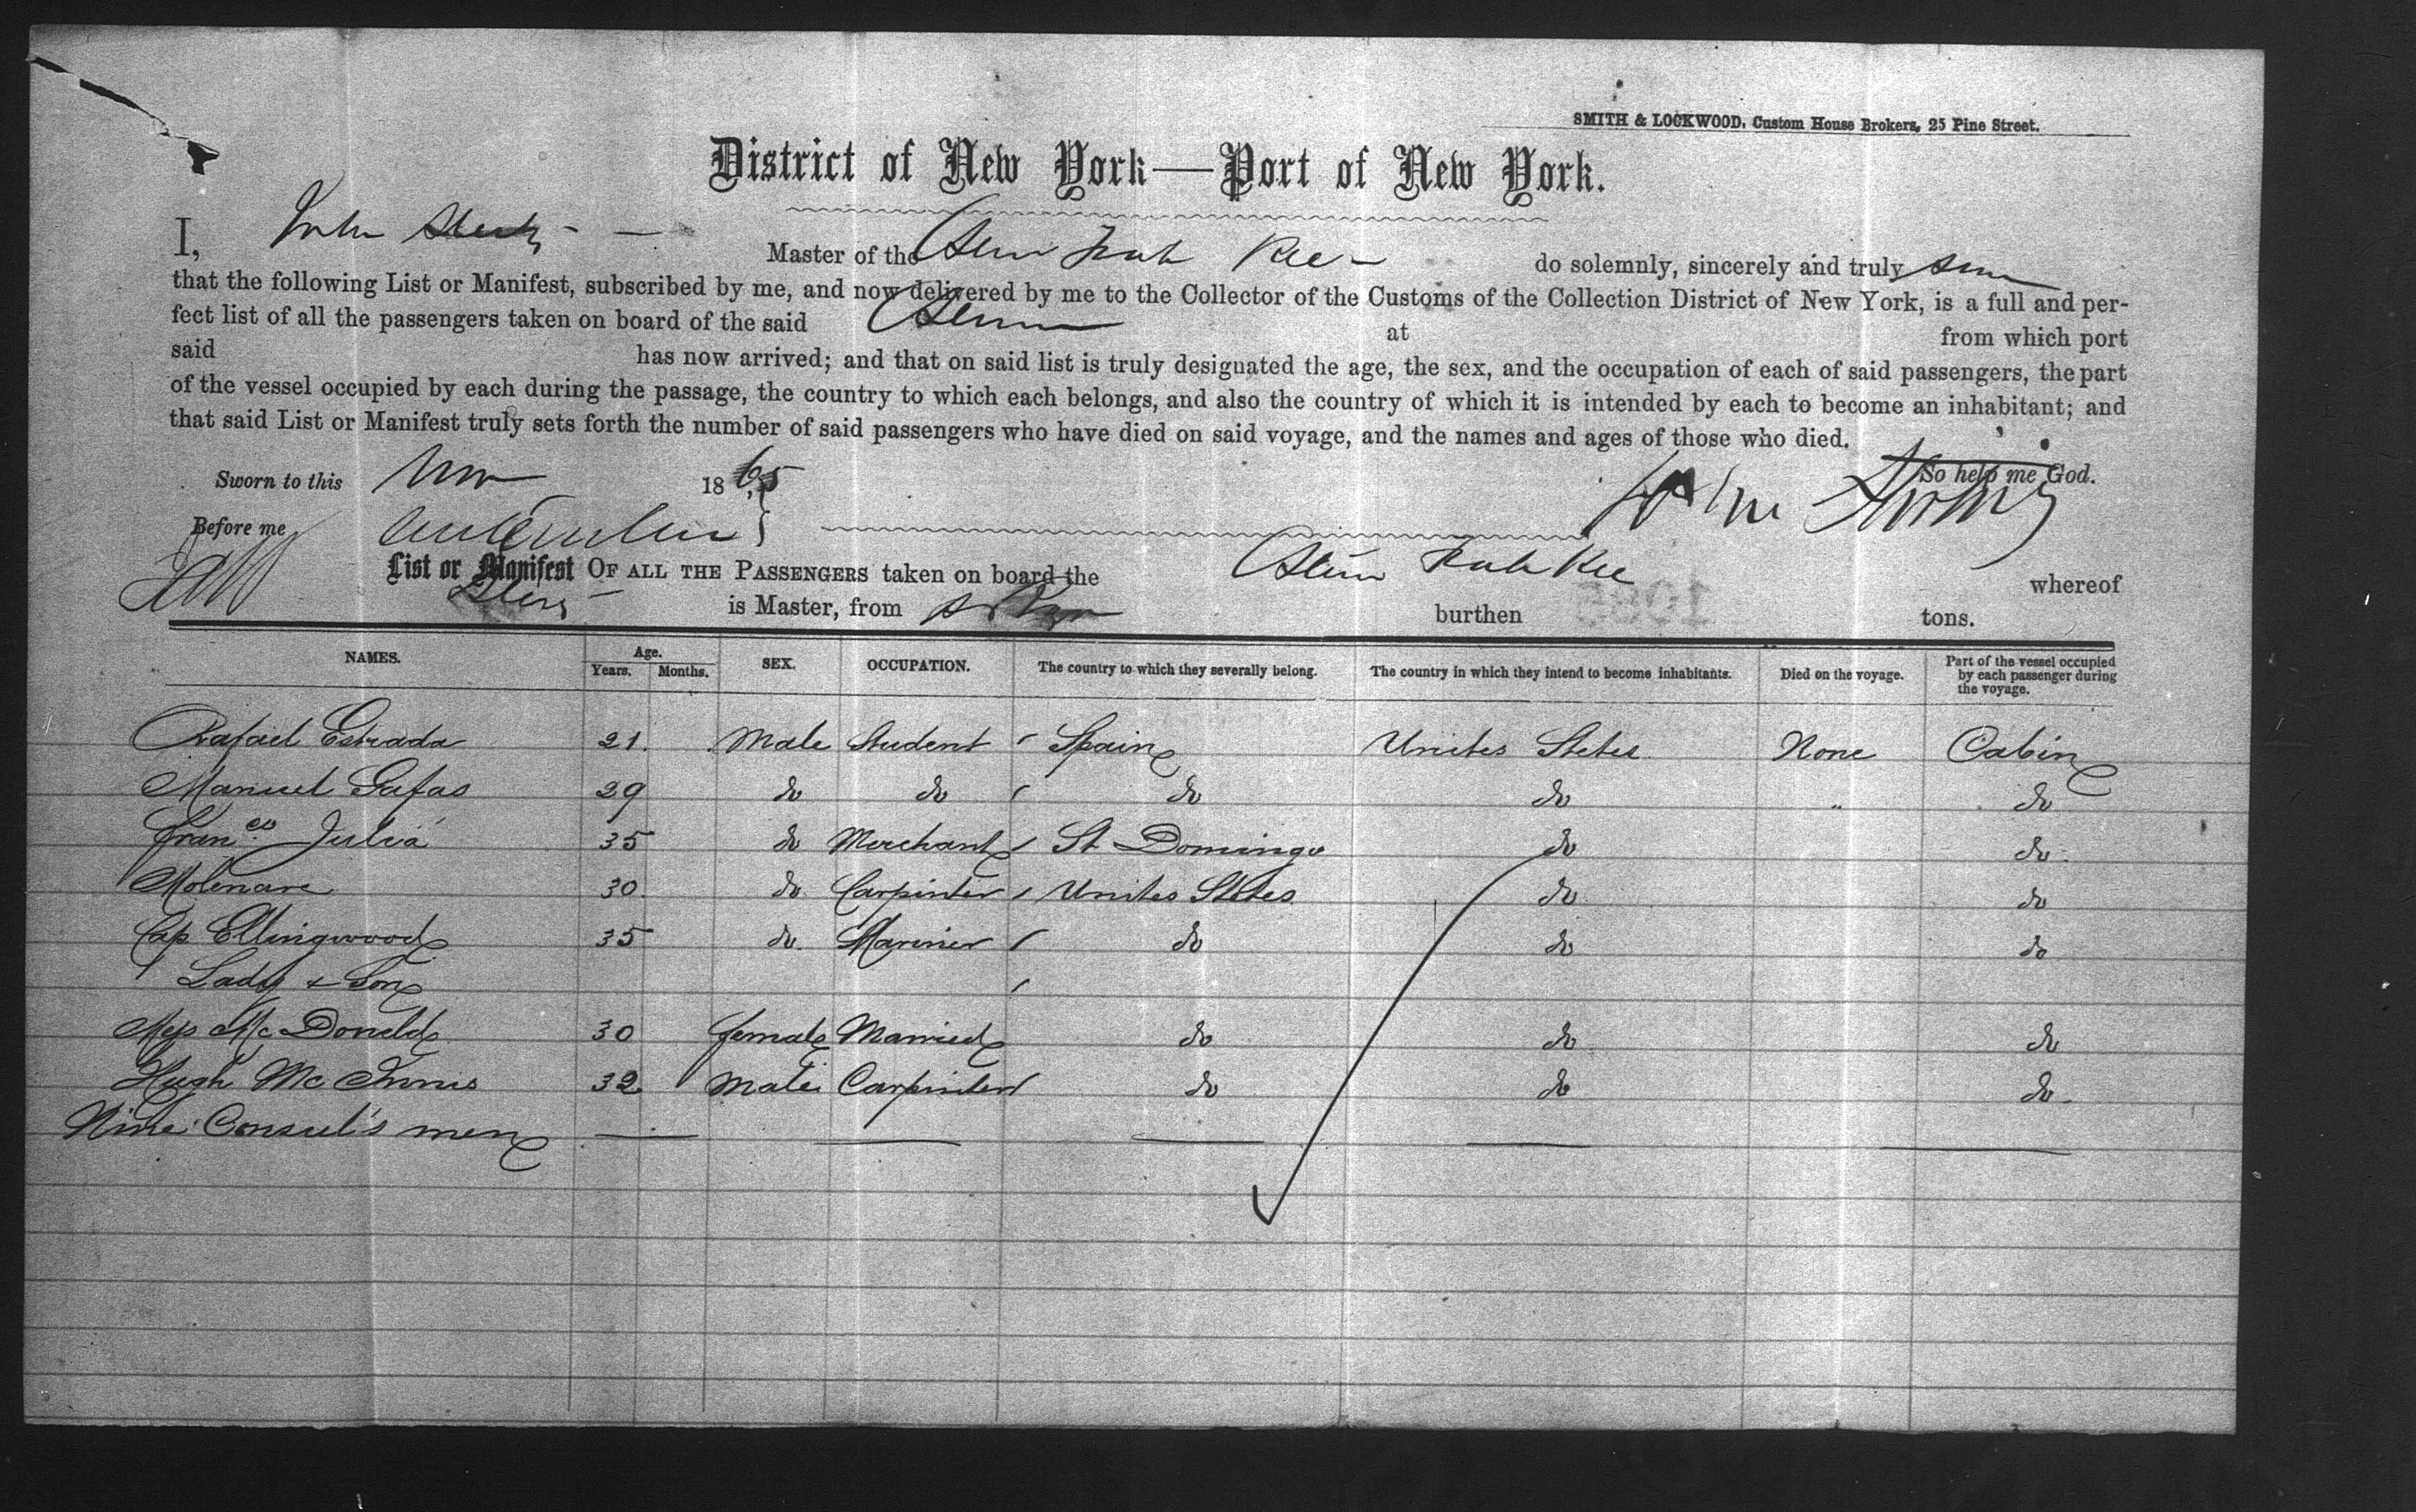 SMITH & LOCKWOOD, Custom House Brokers, 25 Pine Street.
District of New York—Port of New York.
I, John Master of the do solemnly, sincerely and truly
that the following List or Manifest, subscribed by me, and now delivered by me to the Collector of the Customs of the Collection District of New York, is a full and per-
fect list of all the passengers taken on board of the said at from which port
said has now arrived; and that on said list is truly designated the age, the sex, and the occupation of each of said passengers, the part
of the vessel occupied by each during the passage, the country to which each belongs, and also the country of which it is intended by each to become an inhabitant; and
that said List or Manifest truly sets forth the number of said passengers who have died on said voyage, and the names and ages of those who died.
So help me God.
Sworn to this 1865
Before me
List or Manifest OF ALL THE PASSENGERS taken on board the whereof
is Master, from burthen tons.
1085
NAMES. Age. Years. Months. SEX. OCCUPATION. The country to which they severally belong. The country in which they intend to become inhabitants. Died on the voyage. Part of the vessel occupied by each passenger during the voyage.
Rafael Estrada 21. Male Student Spain Unites States None Cabin
Manuel Gafas 29 do do do do " do
Fran.co Juliá 35 do Merchant St Domingo do do.
Molenare 30. do. Carpinter Unites States do do
Cap Ellingwood 35 do. Mariner do do do
Lady & Son
McDonald 30 female Married do do do
Hugh McInnis 32 Male Carpinter do do do.
Nine Consul's men